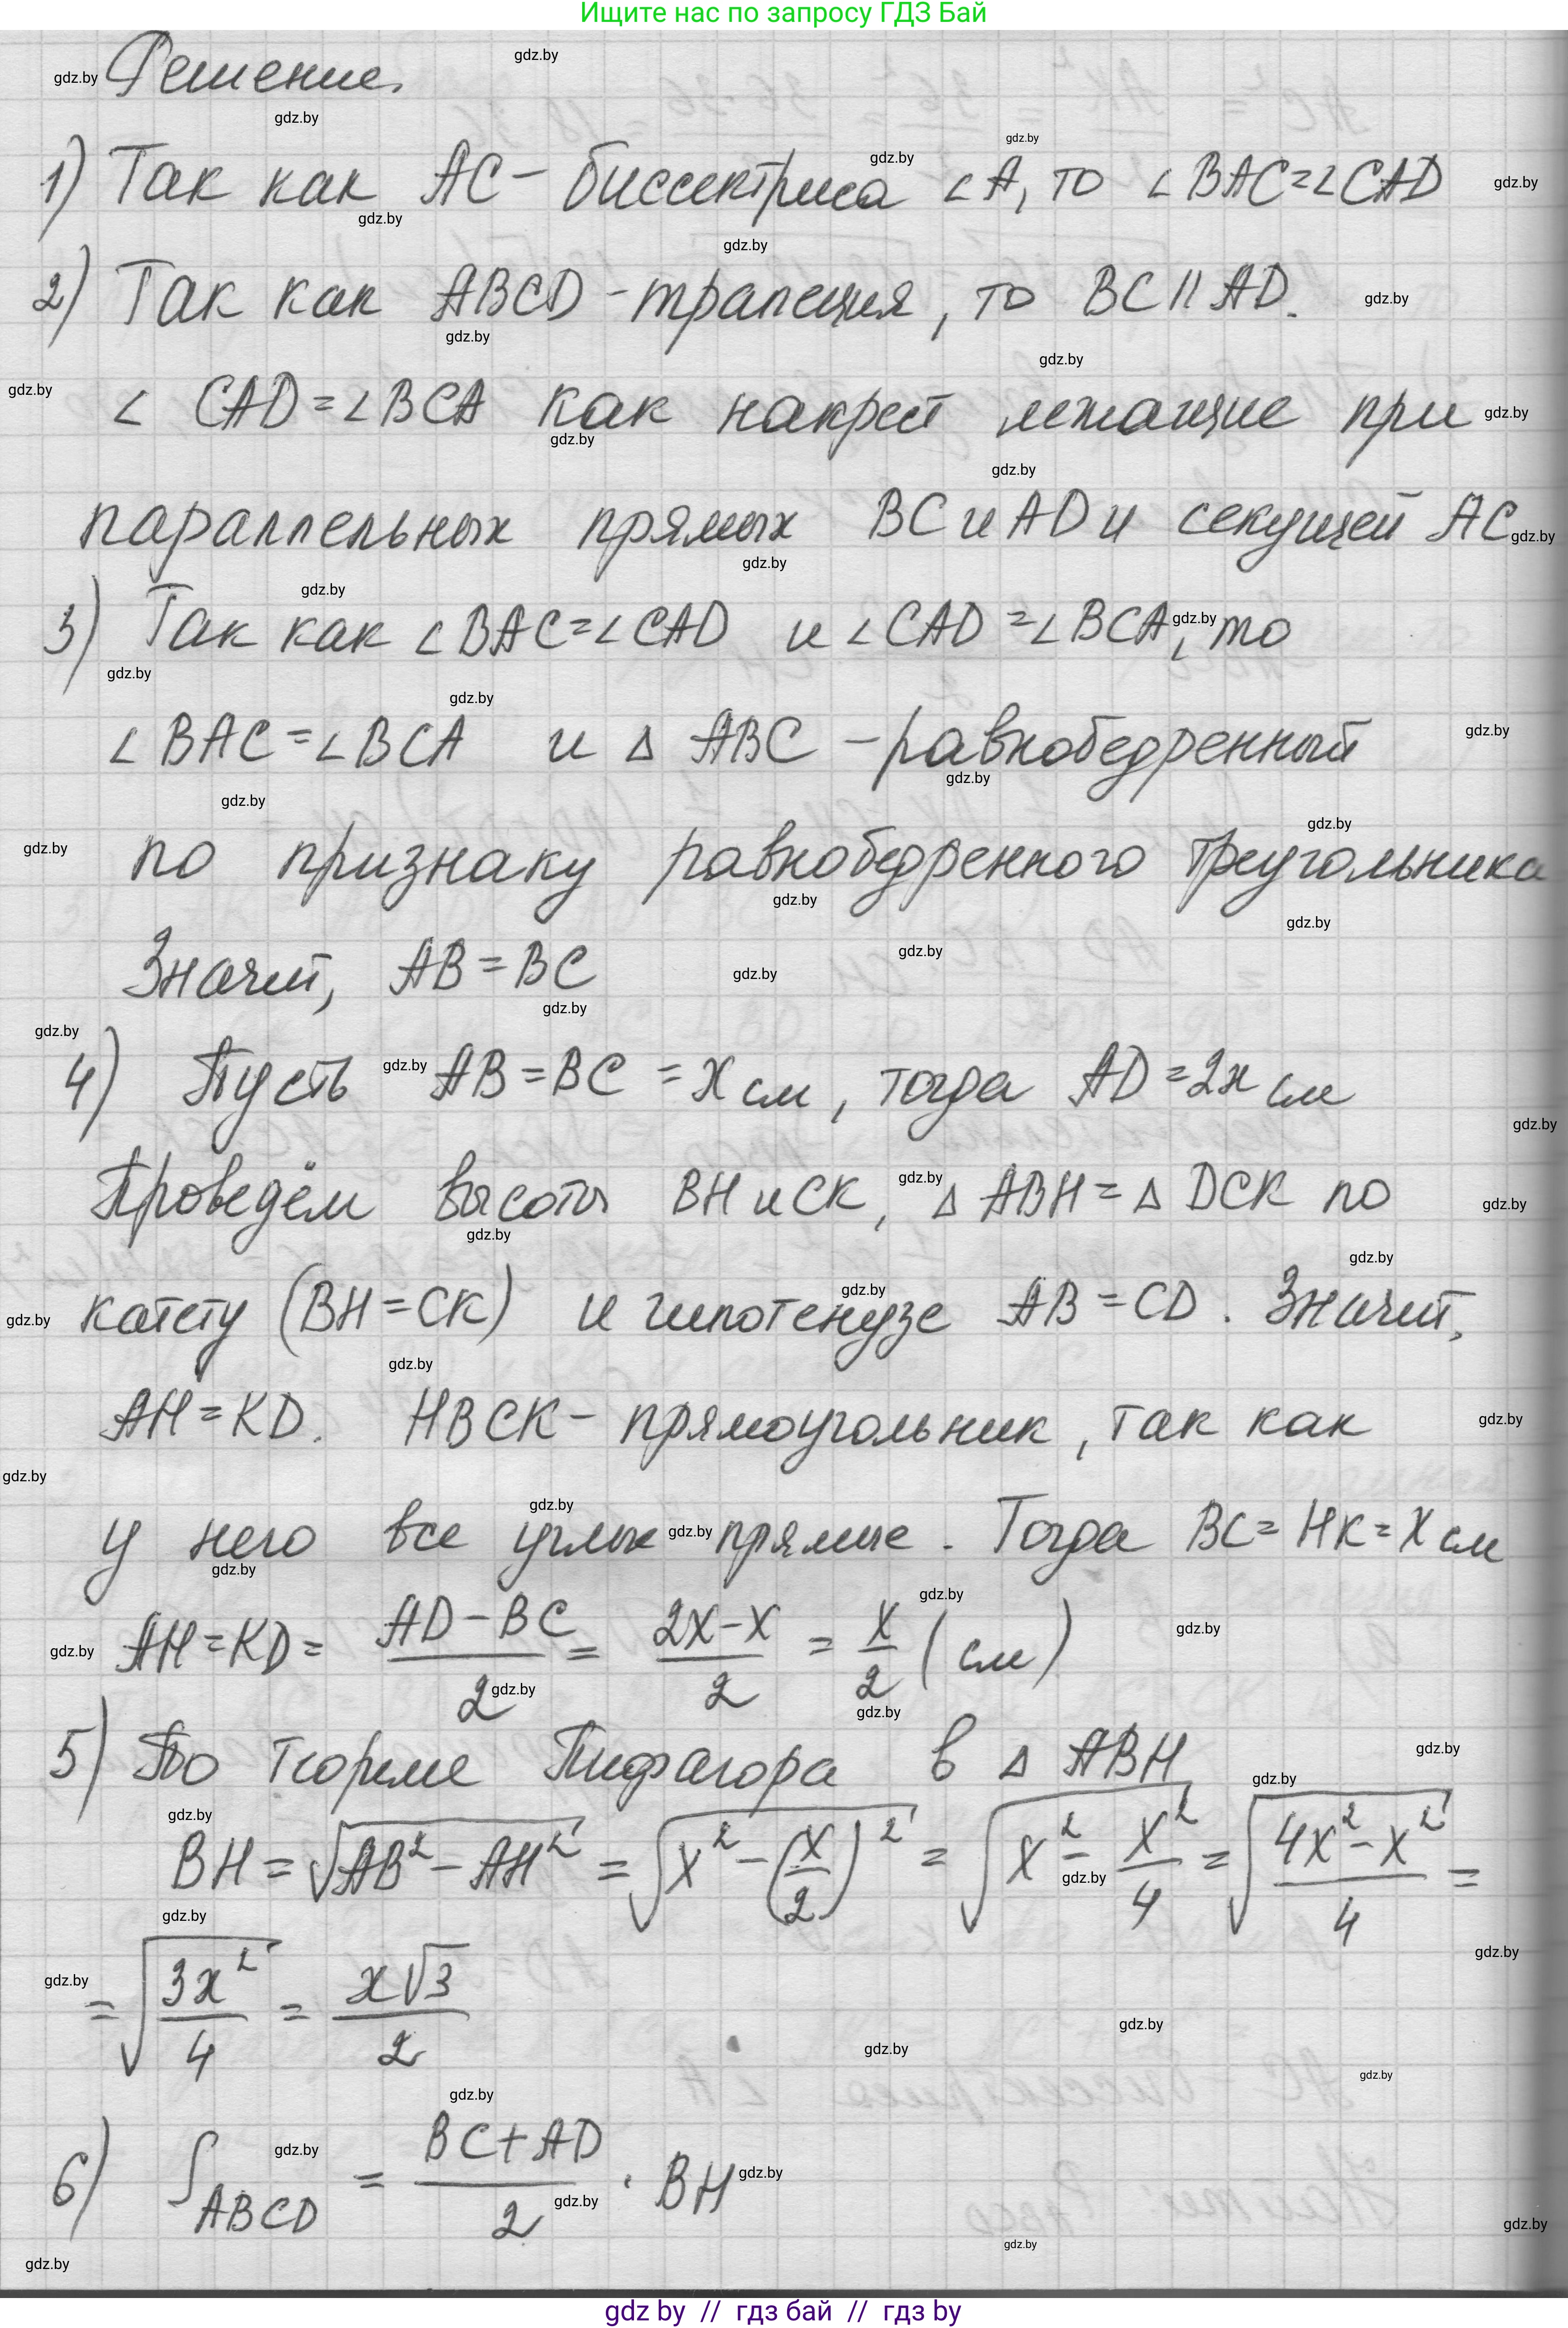 Ищите нас по запросу ГДЗ Бай
Решение.
1) Так как AC - биссектриса ∠A, то ∠BAC=∠CAD
2) Так как ABCD - трапеция, то BC || AD.
∠ CAD=∠BCA как накрест лежащие при
параллельных прямых BC и AD и секущей AC
3) Так как ∠BAC=∠CAD и ∠CAD=∠BCA, то
∠BAC=∠BCA и Δ ABC - равнобедренный
по признаку равнобедренного треугольника
Значит, AB=BC
4) Пусть AB=BC=x см, тогда AD=2x см
Проведём высоты BH и CK, Δ ABH=Δ DCK по
катету (BH=CK) и гипотенузе AB=CD. Значит,
AH=KD. HBCK - прямоугольник, так как
у него все углы прямые. Тогда BC=HK=x см
AH=KD= (AD-BC)/2 = (2x-x)/2 = x/2 (см)
5) По теореме Пифагора в Δ ABH
BH=√(AB²-AH²) = √(x²-(x/2)²) = √(x²-x²/4) = √((4x²-x²)/4) =
= √(3x²/4) = x√3/2
6) S_ABCD = (BC+AD)/2 · BH
gdz by // гдз бай // гдз by